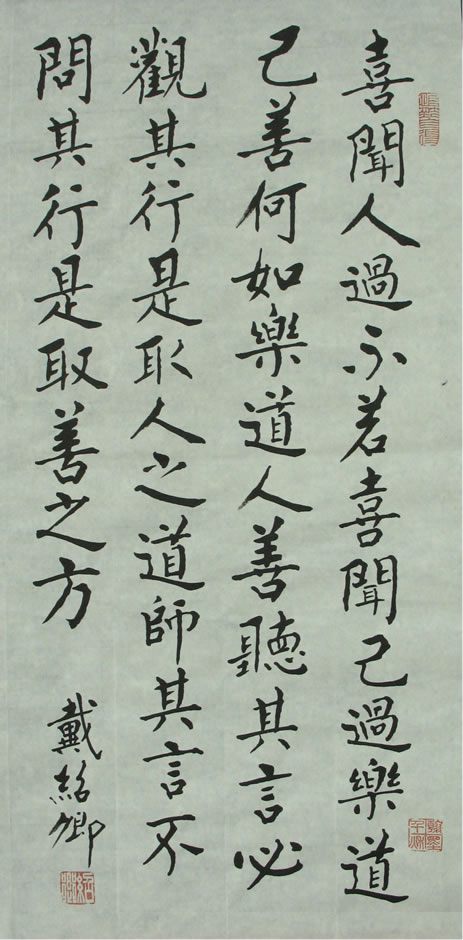 喜聞人過不若喜聞己過樂道
己善何如樂道人善聽其言必
觀其行是取人之道師其言不
問其行是取善之方
戴紹卿